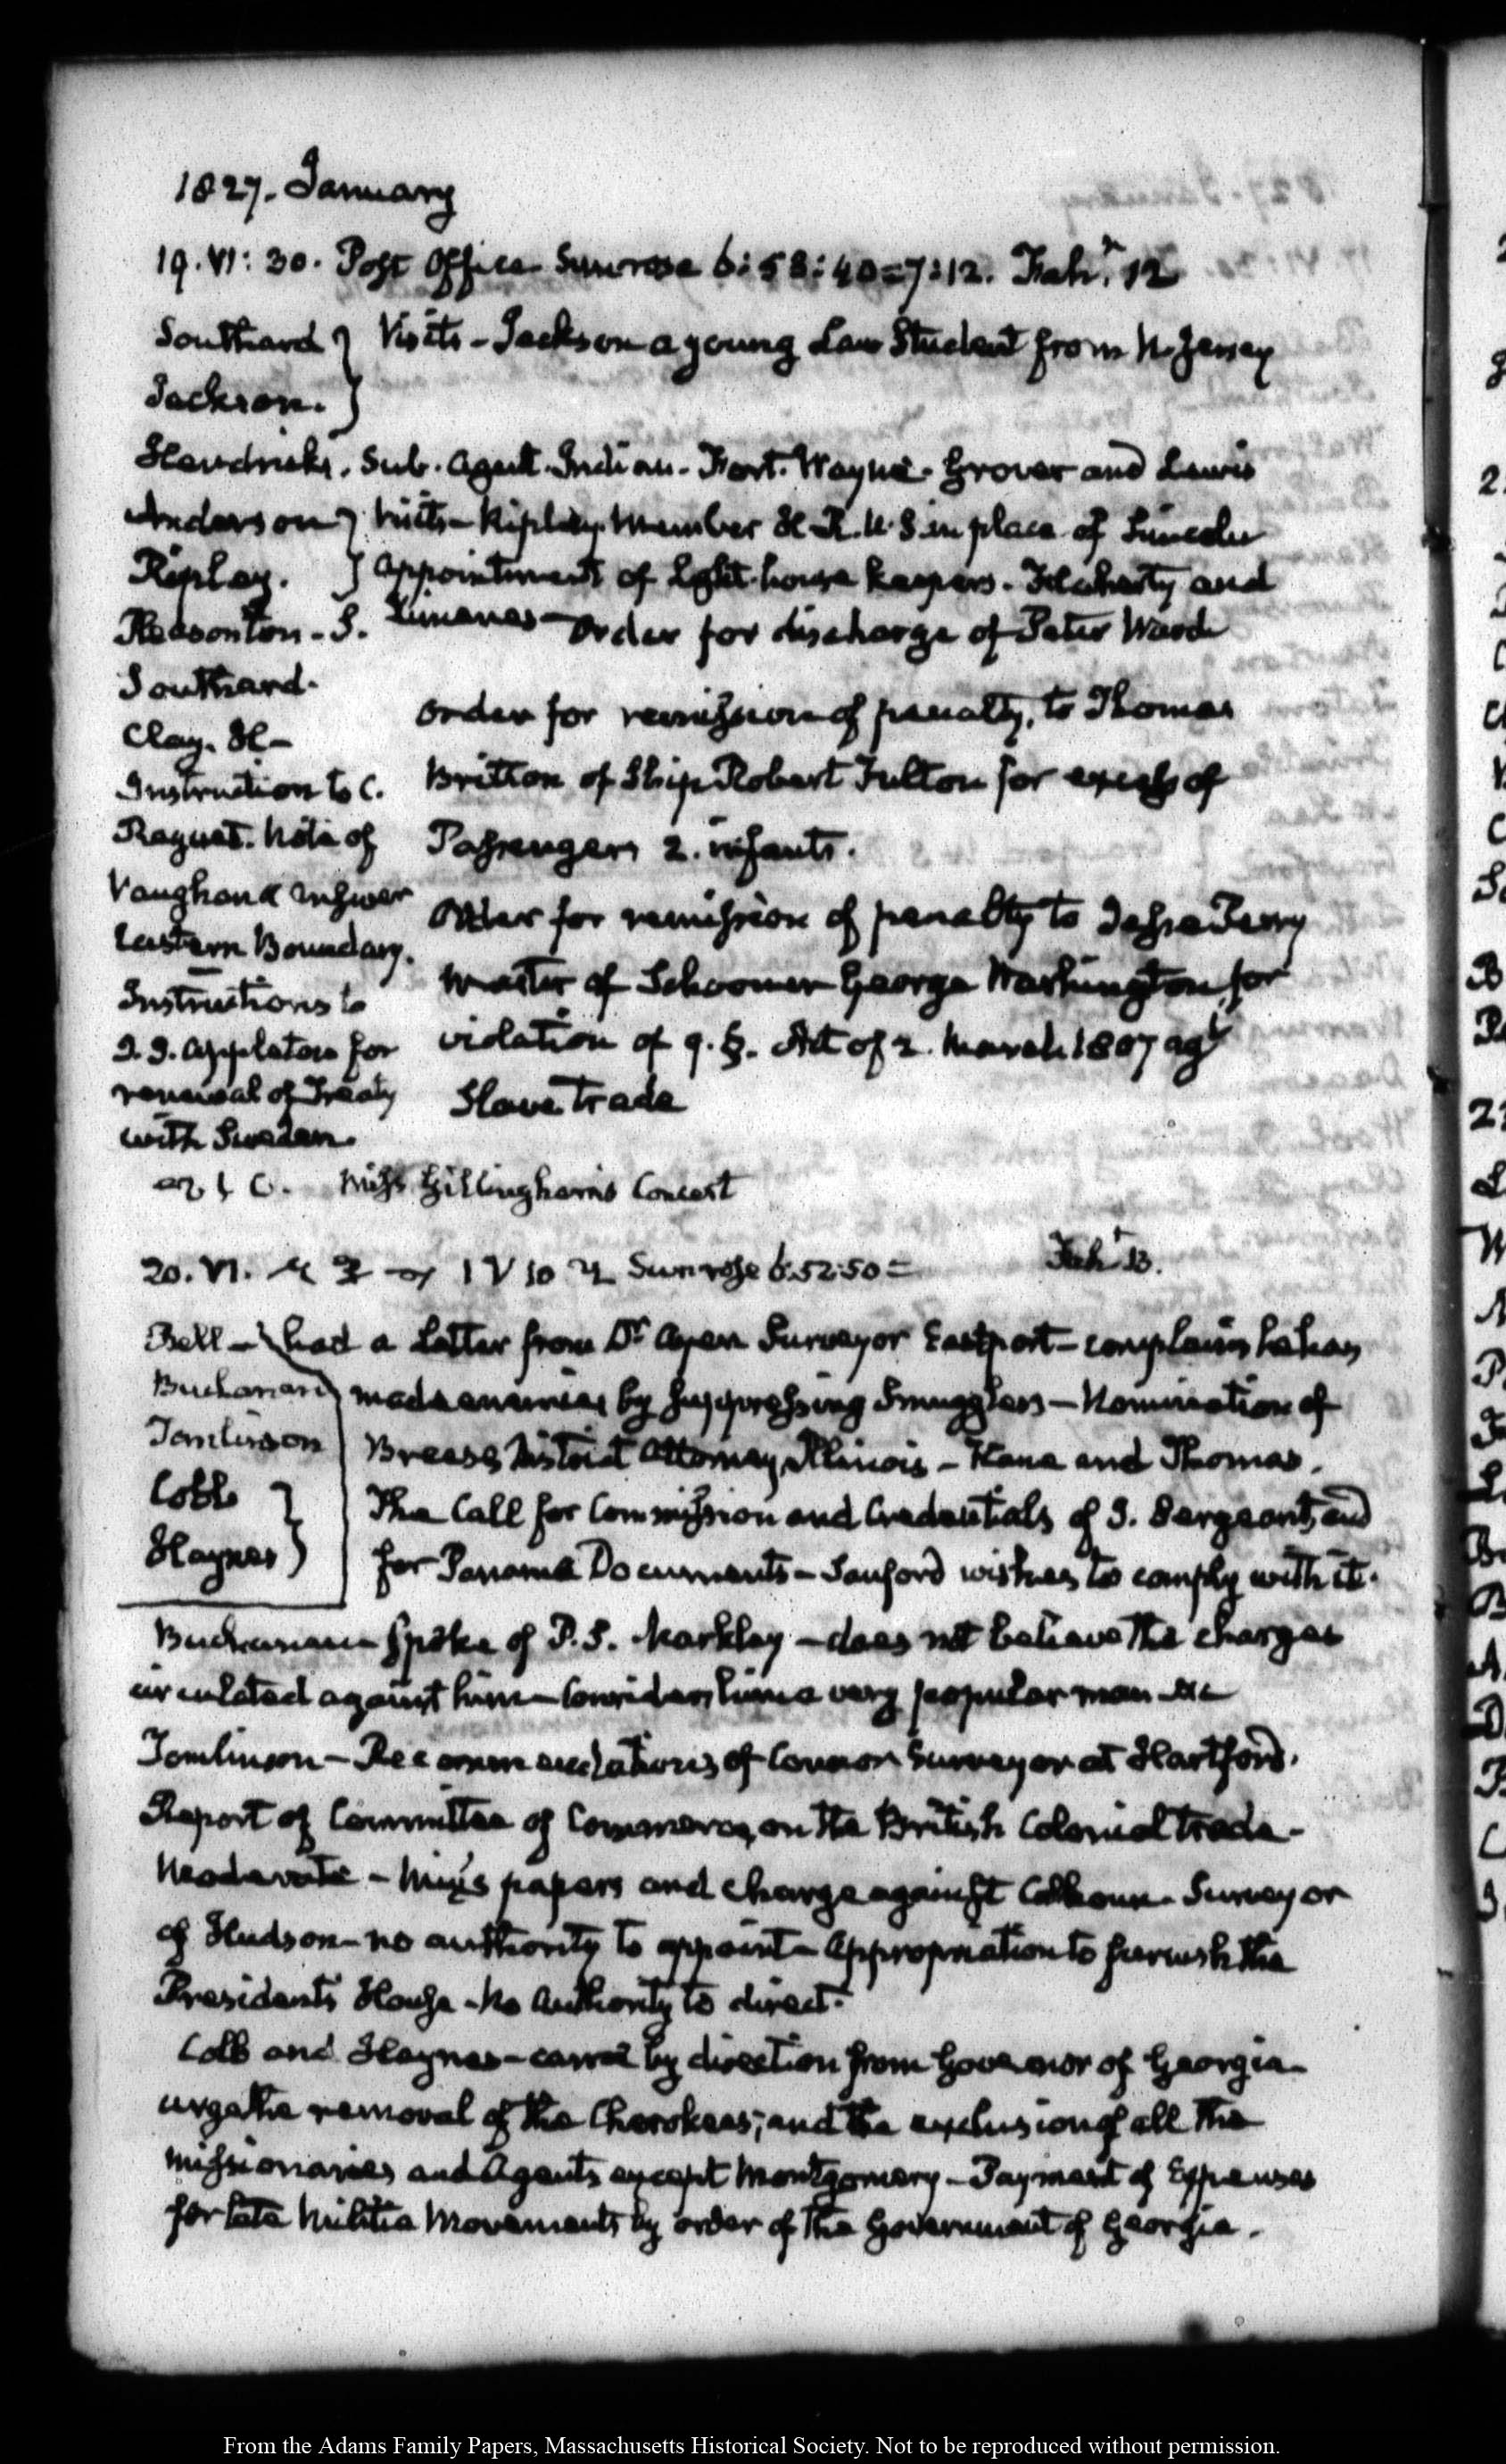 1827. January
19. VI: 30. Post Office Sunrose 6:58:40=7:12. Fahr. 12
Southard } Visits - Jackson a young Law Student from N. Jersey
Jackson. }
Hendricks. Sub. Agent. Indian. Fort. Wayne. Grover and Lewis
Anderson } Visits - Ripley Member H. R. U. S in place of Lincoln
Ripley. } Appointments of Light-house keepers. Flaherty and
Pleasonton - S. Order for discharge of Peter Ward
Southard.
Clay. H -
Instruction to C.
Raguet. Note of
Vaughan & Answer
Eastern Boundary.
Instructions to
J. J. Appleton for
renewal of Treaty
with Sweden.
order for remission of penalty, to Thomas
Britton of Ship Robert Fulton for excess of
Passengers 2. infants.
Order for remission of penalty to Jesse Terry
Master of Schooner George Washington, for
violation of 9. §. Act of 2. March 1807 agt
Slave Trade
Miss Gillingham's Concert
20. VI. Sunrose 6.52:50= Fahr 13.
Bell - had a Letter from Dr Ayer Surveyor Eastport - complains he has
Buchanan made enemies by suppressing Smugglers - Nomination of
Tomlinson Breese District Attorney, Illinois - Kane and Thomas.
Cobb } The Call for Commission and Credentials of J. Sergeant, and
Haynes } for Panama Documents - Sanford wishes to comply with it.
Buchanan - Spoke of P. S. Markley - does not believe the charges
circulated against him - Considers him a very popular man &c
Tomlinson - Recommendations of Connor Surveyor at Hartford.
Report of Committee of Commerce, on the British Colonial trade -
Moderate - Mix's papers and charge against Calhoun - Surveyor
of Hudson - no authority to appoint - Appropriation to furnish the
Presidents House - No Authority to direct.
Cobb and Haynes - came by direction from Governor of Georgia
urge the removal of the Cherokees; and the exclusion of all the
missionaries and Agents except Montgomery - Payment of Expenses
for late Militia Movements by order of the Government of Georgia.
From the Adams Family Papers, Massachusetts Historical Society. Not to be reproduced without permission.